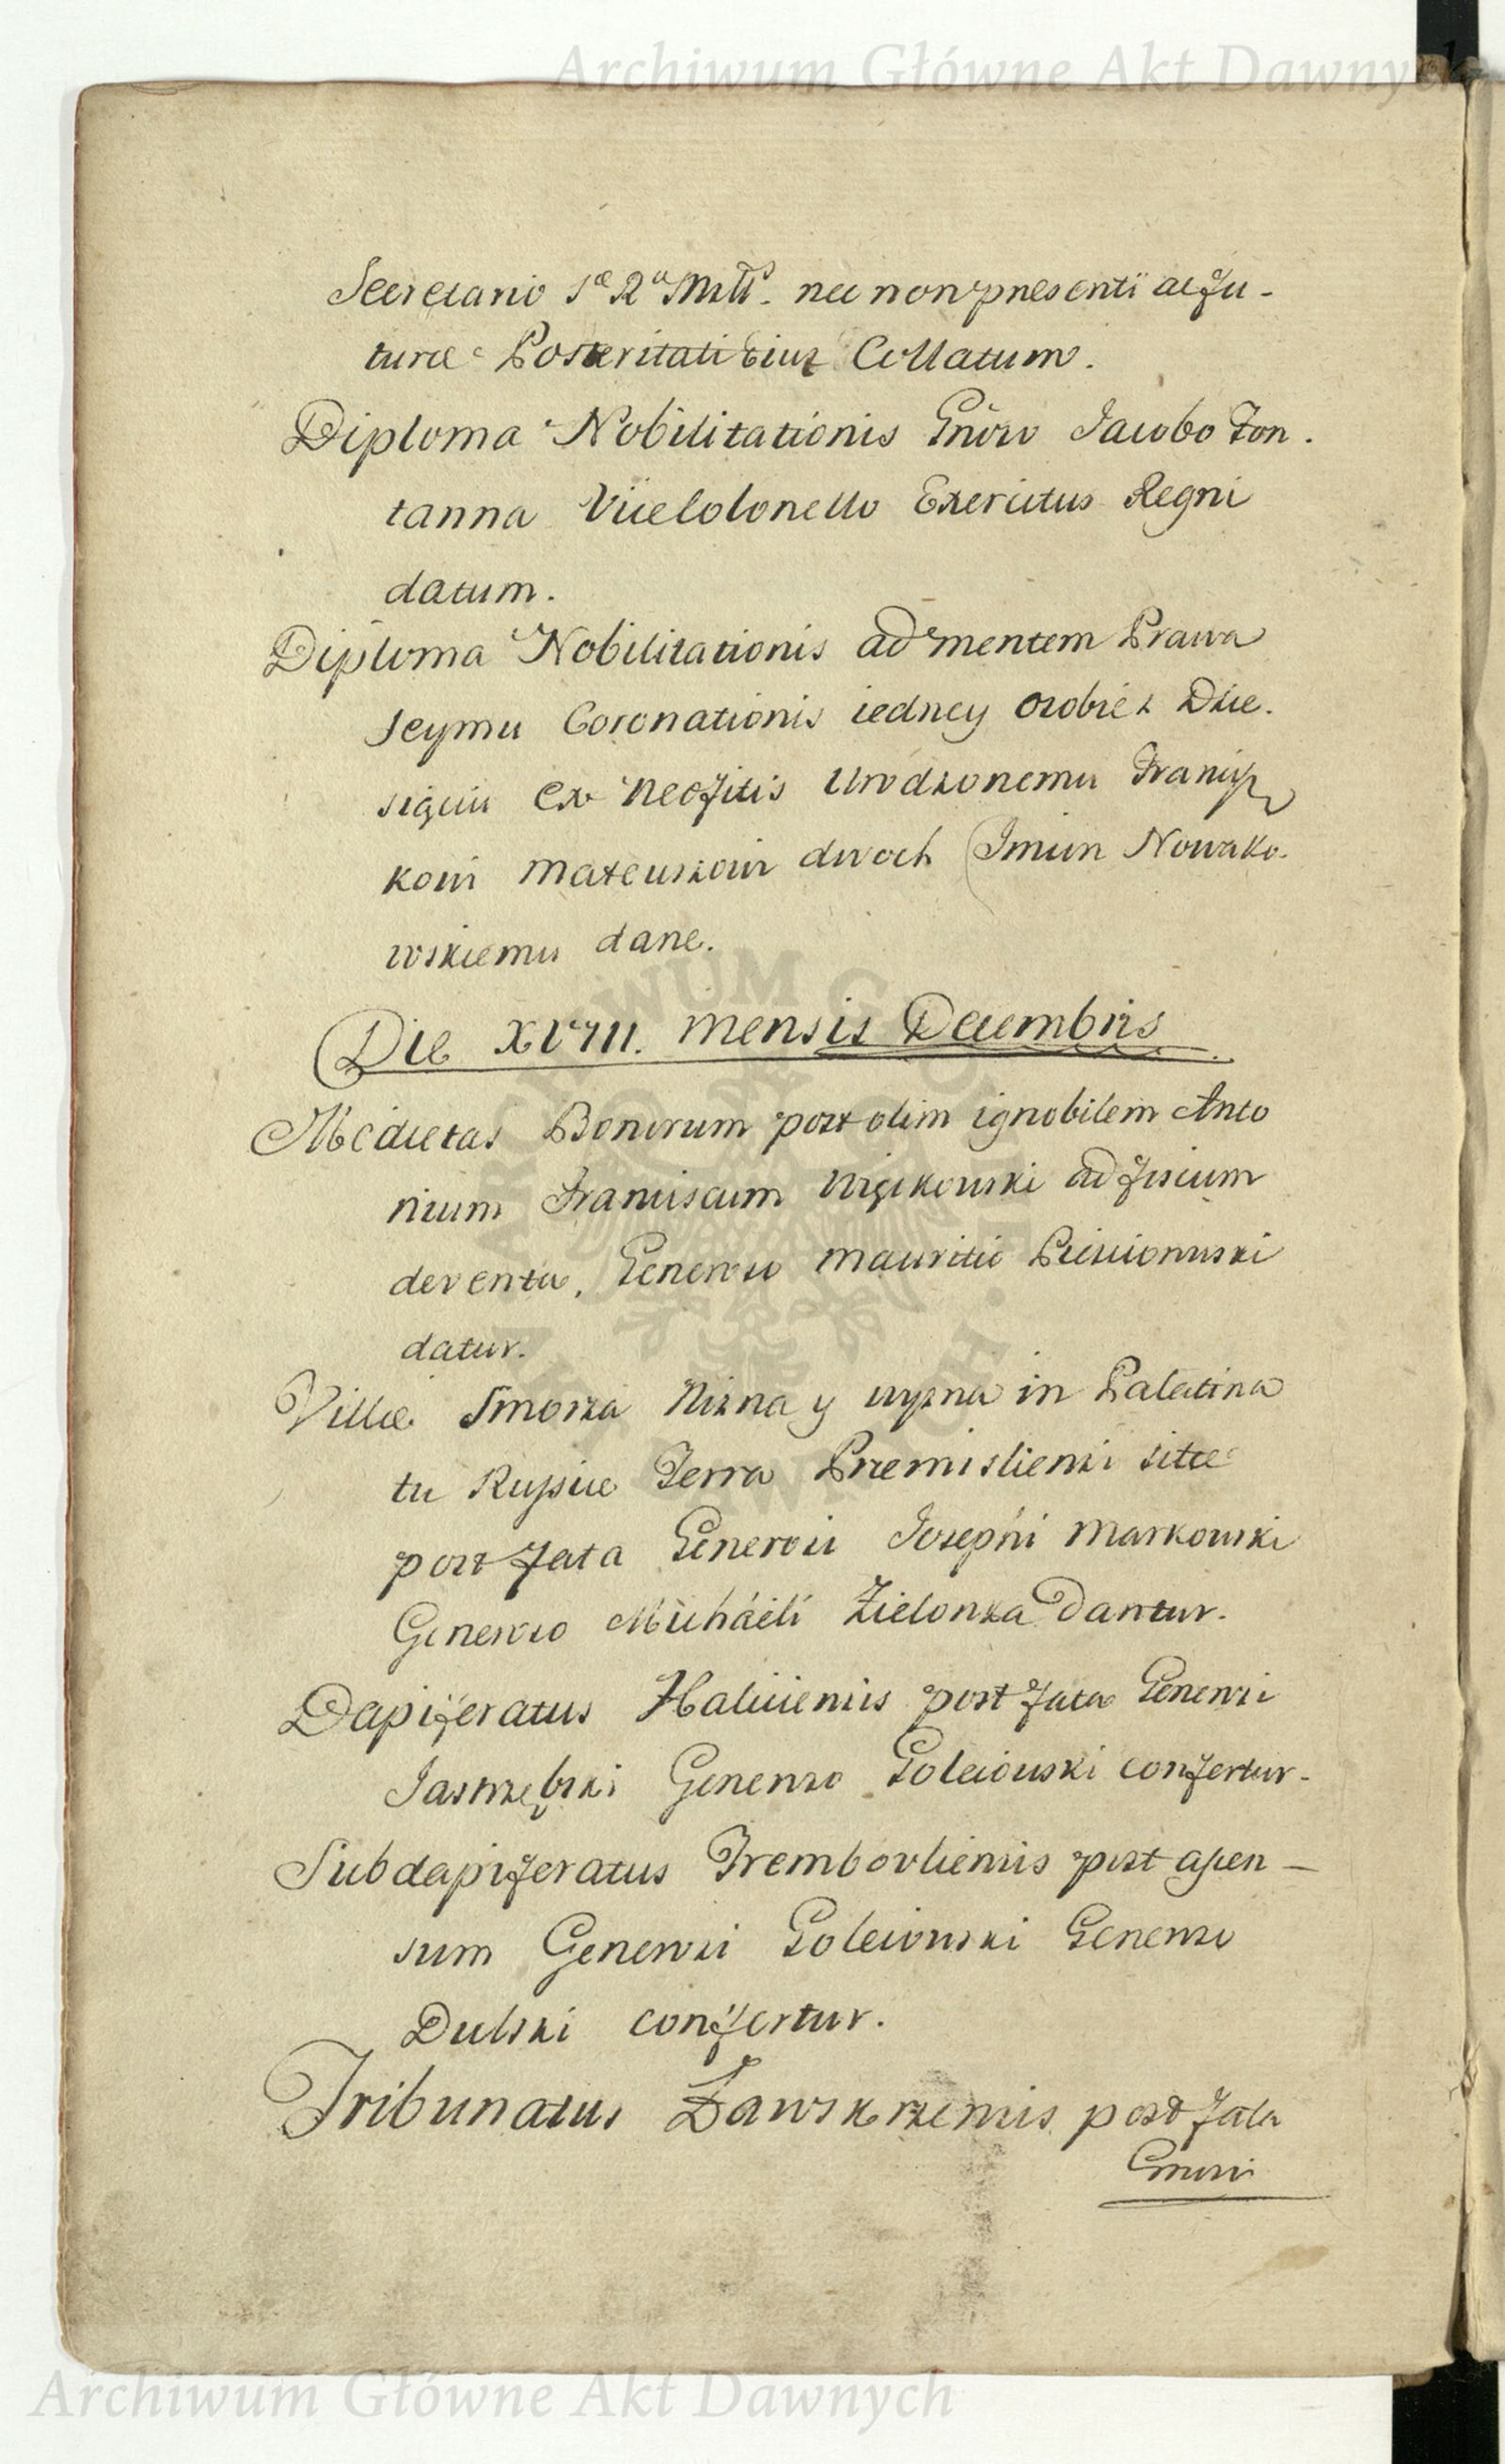 Archiwum Główne Akt Dawnych
Secretario Sæ Ræ Mtis. nec non pnesenti ac fu-
turæ Posteritati Eius Collatum.
Diploma Nobilitationis Gnõso Jacobo Fon.
tanna Vicecolonello Exercitus Regni
datum.
Diploma Nobilitationis ad mentem Prawa
Seymu Coronationis iedney osobie z Dzie.
sięciu ex Neofitis Urodzonemu Francisz
kowi Mateuszowi dwoch Imion Nowako.
wskiemu dane.
Die XVIII. mensis Decembris
Medietas Bonorum post olim ignobilem Anto
nium Franciscum ad fiscum
deventa, Generoso Mauritio
datur.
Villæ Smorza Nizna y wyzna in Palatina
tu Russiæ Terra Premisliensi sitæ
post fata Generosi Josephi Markowski
Generoso Michaeli Zielonka Dantur.
Dapiferatus Haliciensis post fata Generosi
Jastrzębski Generoso Goleiowski confertur.
Subdapiferatus Trembovliensis post ascen-
sum Generosi Goleiowski Generoso
Dulski confertur.
Tribunatus Zawskrzensis post fata
Gnosi
Archiwum Główne Akt Dawnych